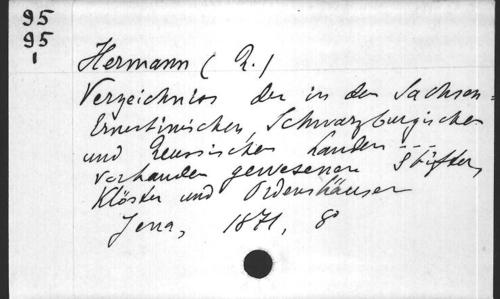 95
95
1
Hermann (R.)
Verzeichniss der in den Sachsen-
Ernestinischen, Schwarzburgischen
und Reussischen Landen ...
vorhanden gewesenen Stifter,
Klöster und Ordenshäuser
Jena, 1871, 8°